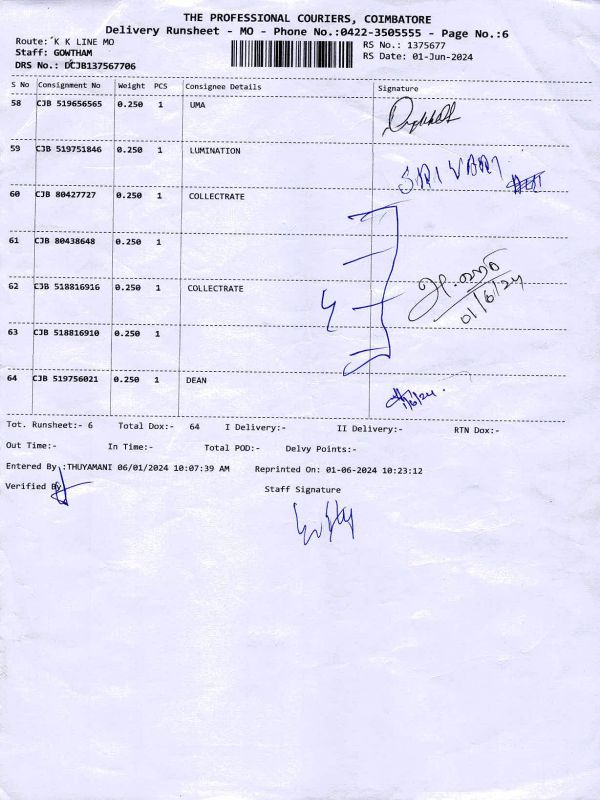 THE PROFESSIONAL COURIERS, COIMBATORE
Delivery Runsheet - MO - Phone No.:0422-3505555 - Page No.:6
Route: K K LINE MO
RS No.: 1375677
Staff: GOWTHAM
RS Date: 01-Jun-2024
DRS No.: DCJB137567706
S No Consignment No Weight PCS Consignee Details Signature
58 CJB 519656565 0.250 1 UMA
59 CJB 519751846 0.250 1 LUMINATION
SRI VARI
60 CJB 80427727 0.250 1 COLLECTRATE
61 CJB 80438648 0.250 1
62 CJB 518816916 0.250 1 COLLECTRATE
01/6/24
63 CJB 518816910 0.250 1
64 CJB 519756021 0.250 1 DEAN
1/6/24
Tot. Runsheet:- 6 Total Dox:- 64 I Delivery:- II Delivery:- RTN Dox:-
Out Time:- In Time:- Total POD:- Delvy Points:-
Entered By :THUYAMANI 06/01/2024 10:07:39 AM Reprinted On: 01-06-2024 10:23:12
Verified By
Staff Signature